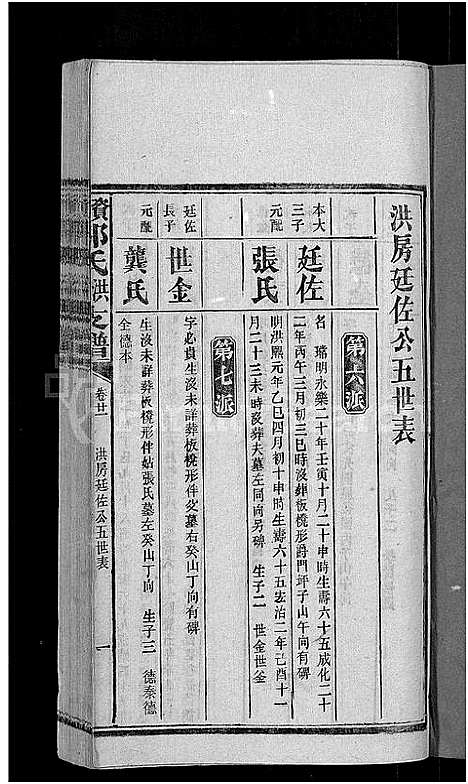 洪房廷佐公五世表
第六派
本大三子 廷佐 名璿明永樂二十年壬寅十月二十申時生壽六十五成化二十
二年丙午三月初三巳時沒葬板櫈形爵門坪子山午向有碑
元配 張氏 明洪熙元年乙巳四月初十申時生壽六十五宏治二年己酉十一
月二十三未時沒葬夫墓左同向另碑 生子二 世金世釜
第七派
廷佐長子 世金 字必貴生沒未詳葬板櫈形伴父墓右癸山丁向有碑
元配 龔氏 生沒未詳葬板櫈形伴姑張氏墓左癸山丁向 生子三 德泰德
全德本
資鄒氏洪支譜 卷廿一 洪房廷佐公五世表 一